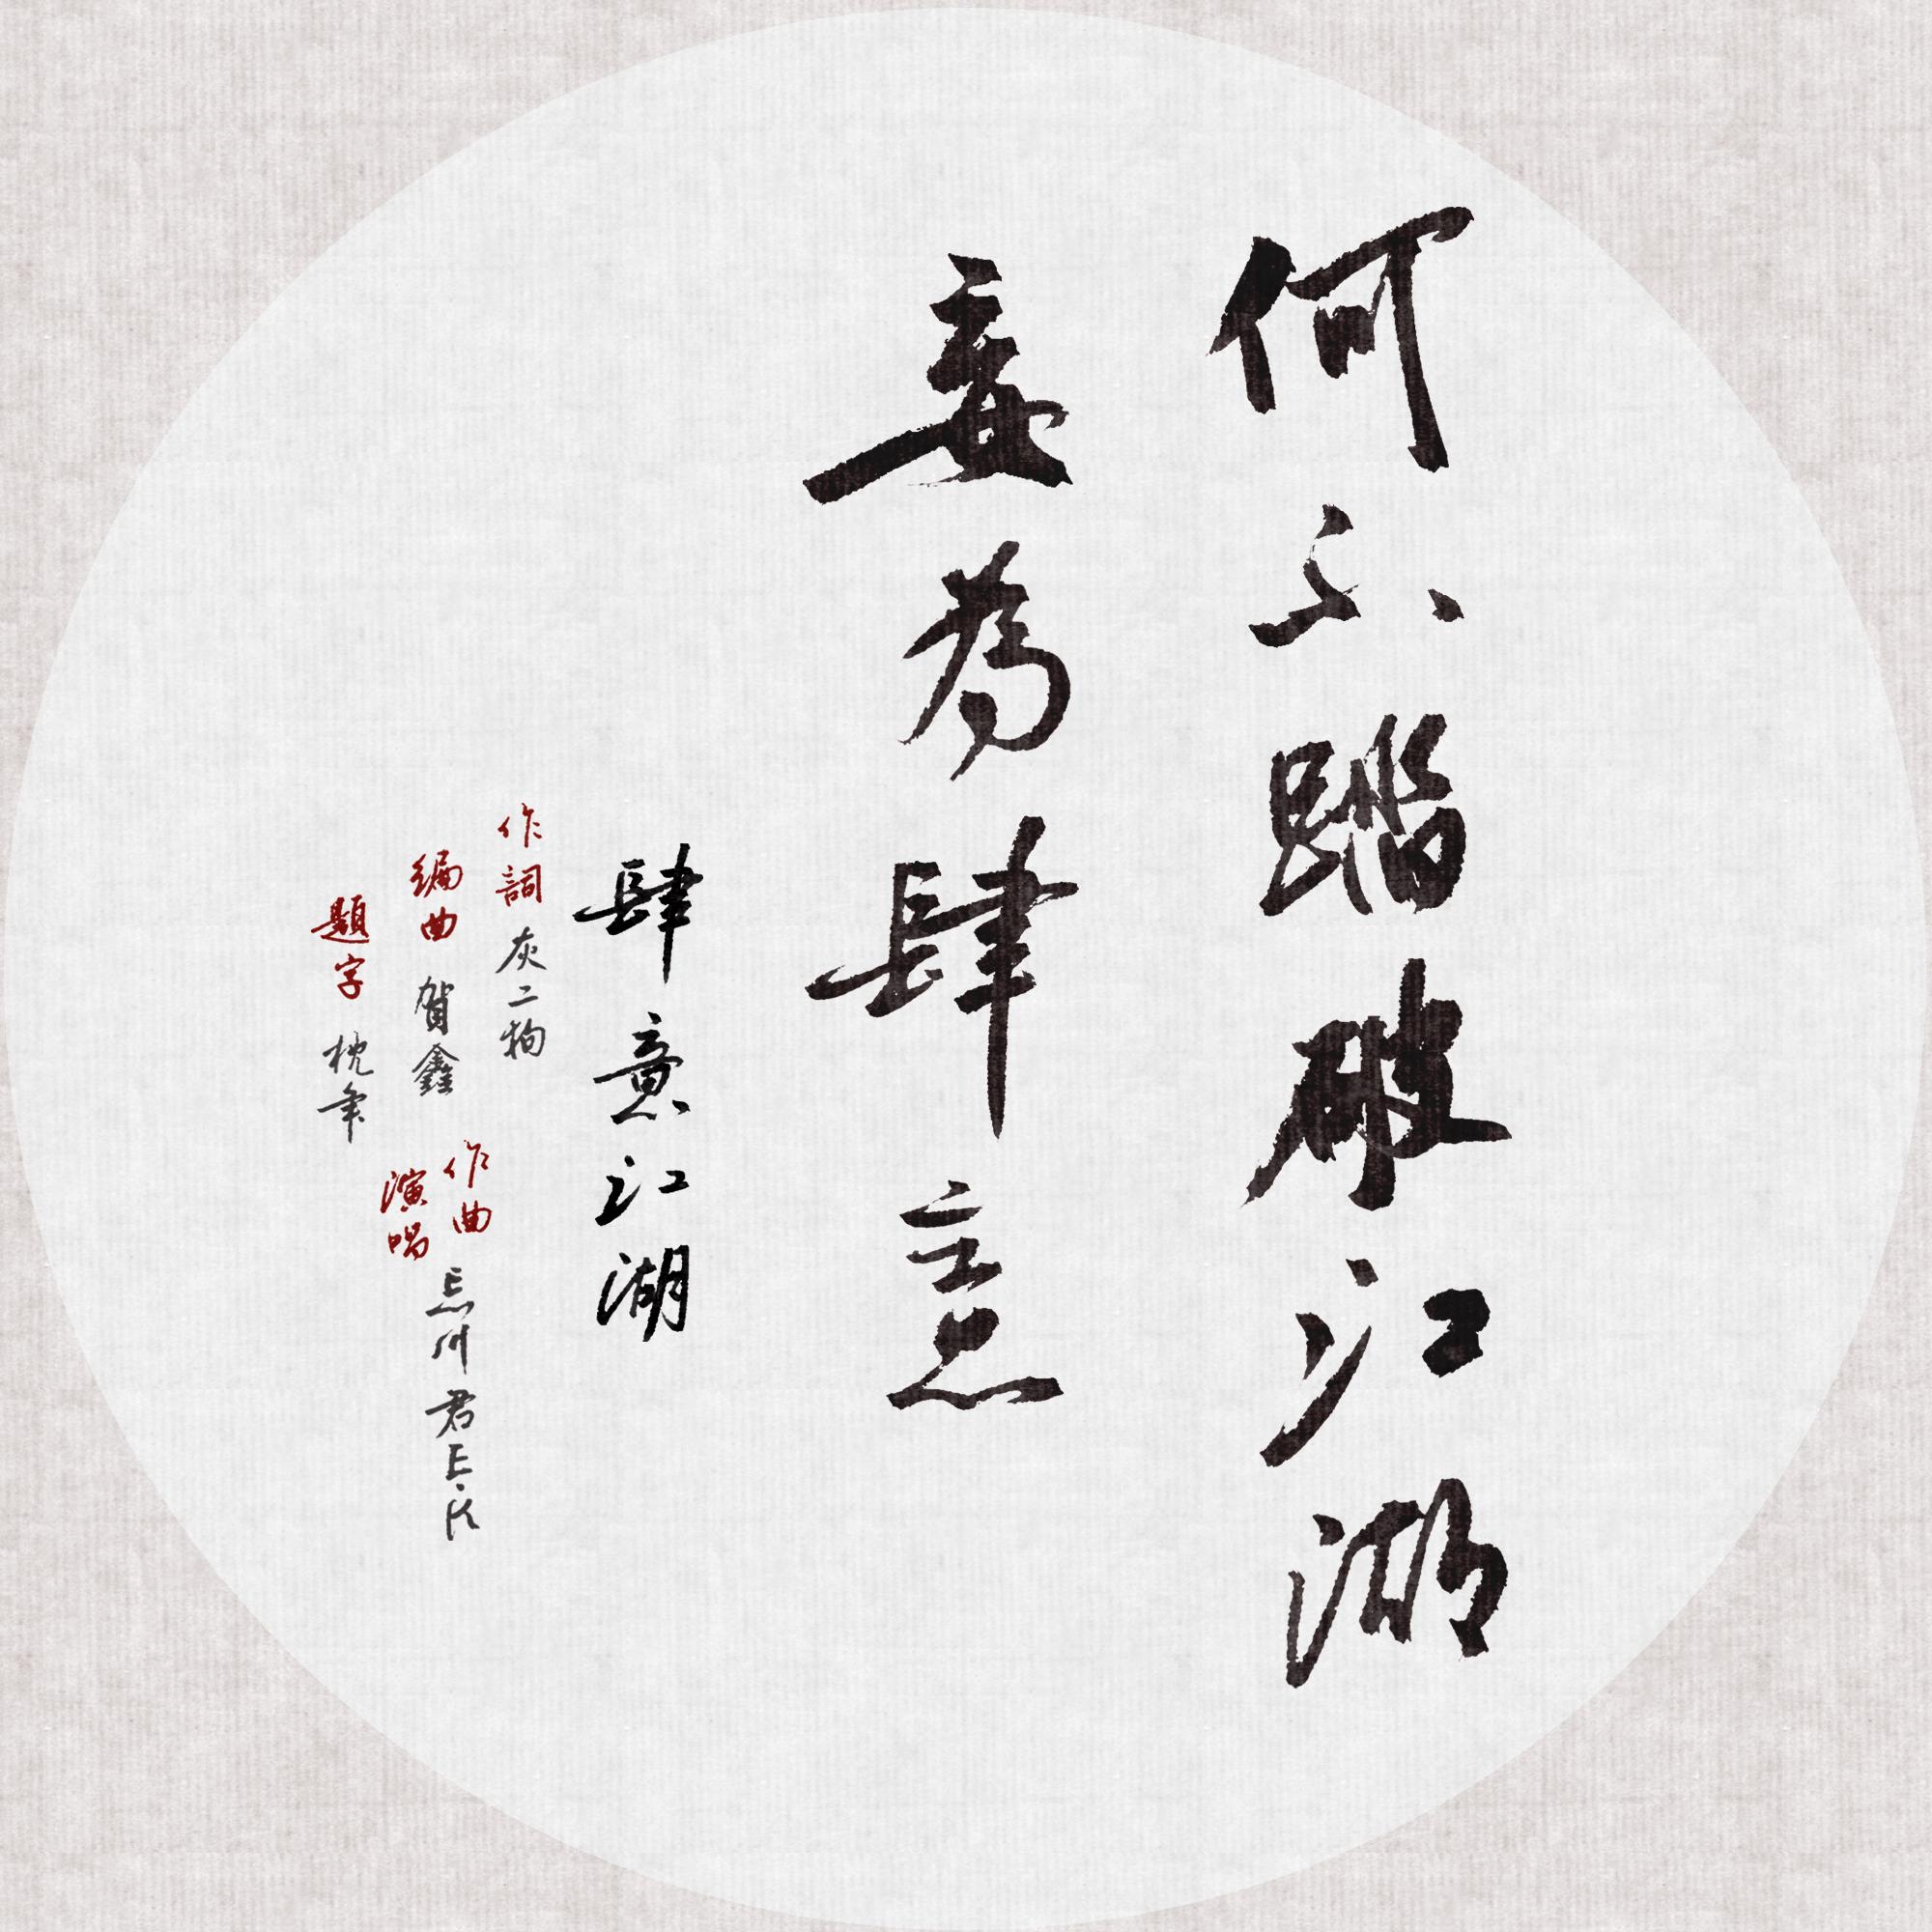 何不踏破江湖
妄为肆意
肆意江湖
作詞 灰二狗
编曲 賀鑫
題字 枕年
作曲
演唱
忘川君